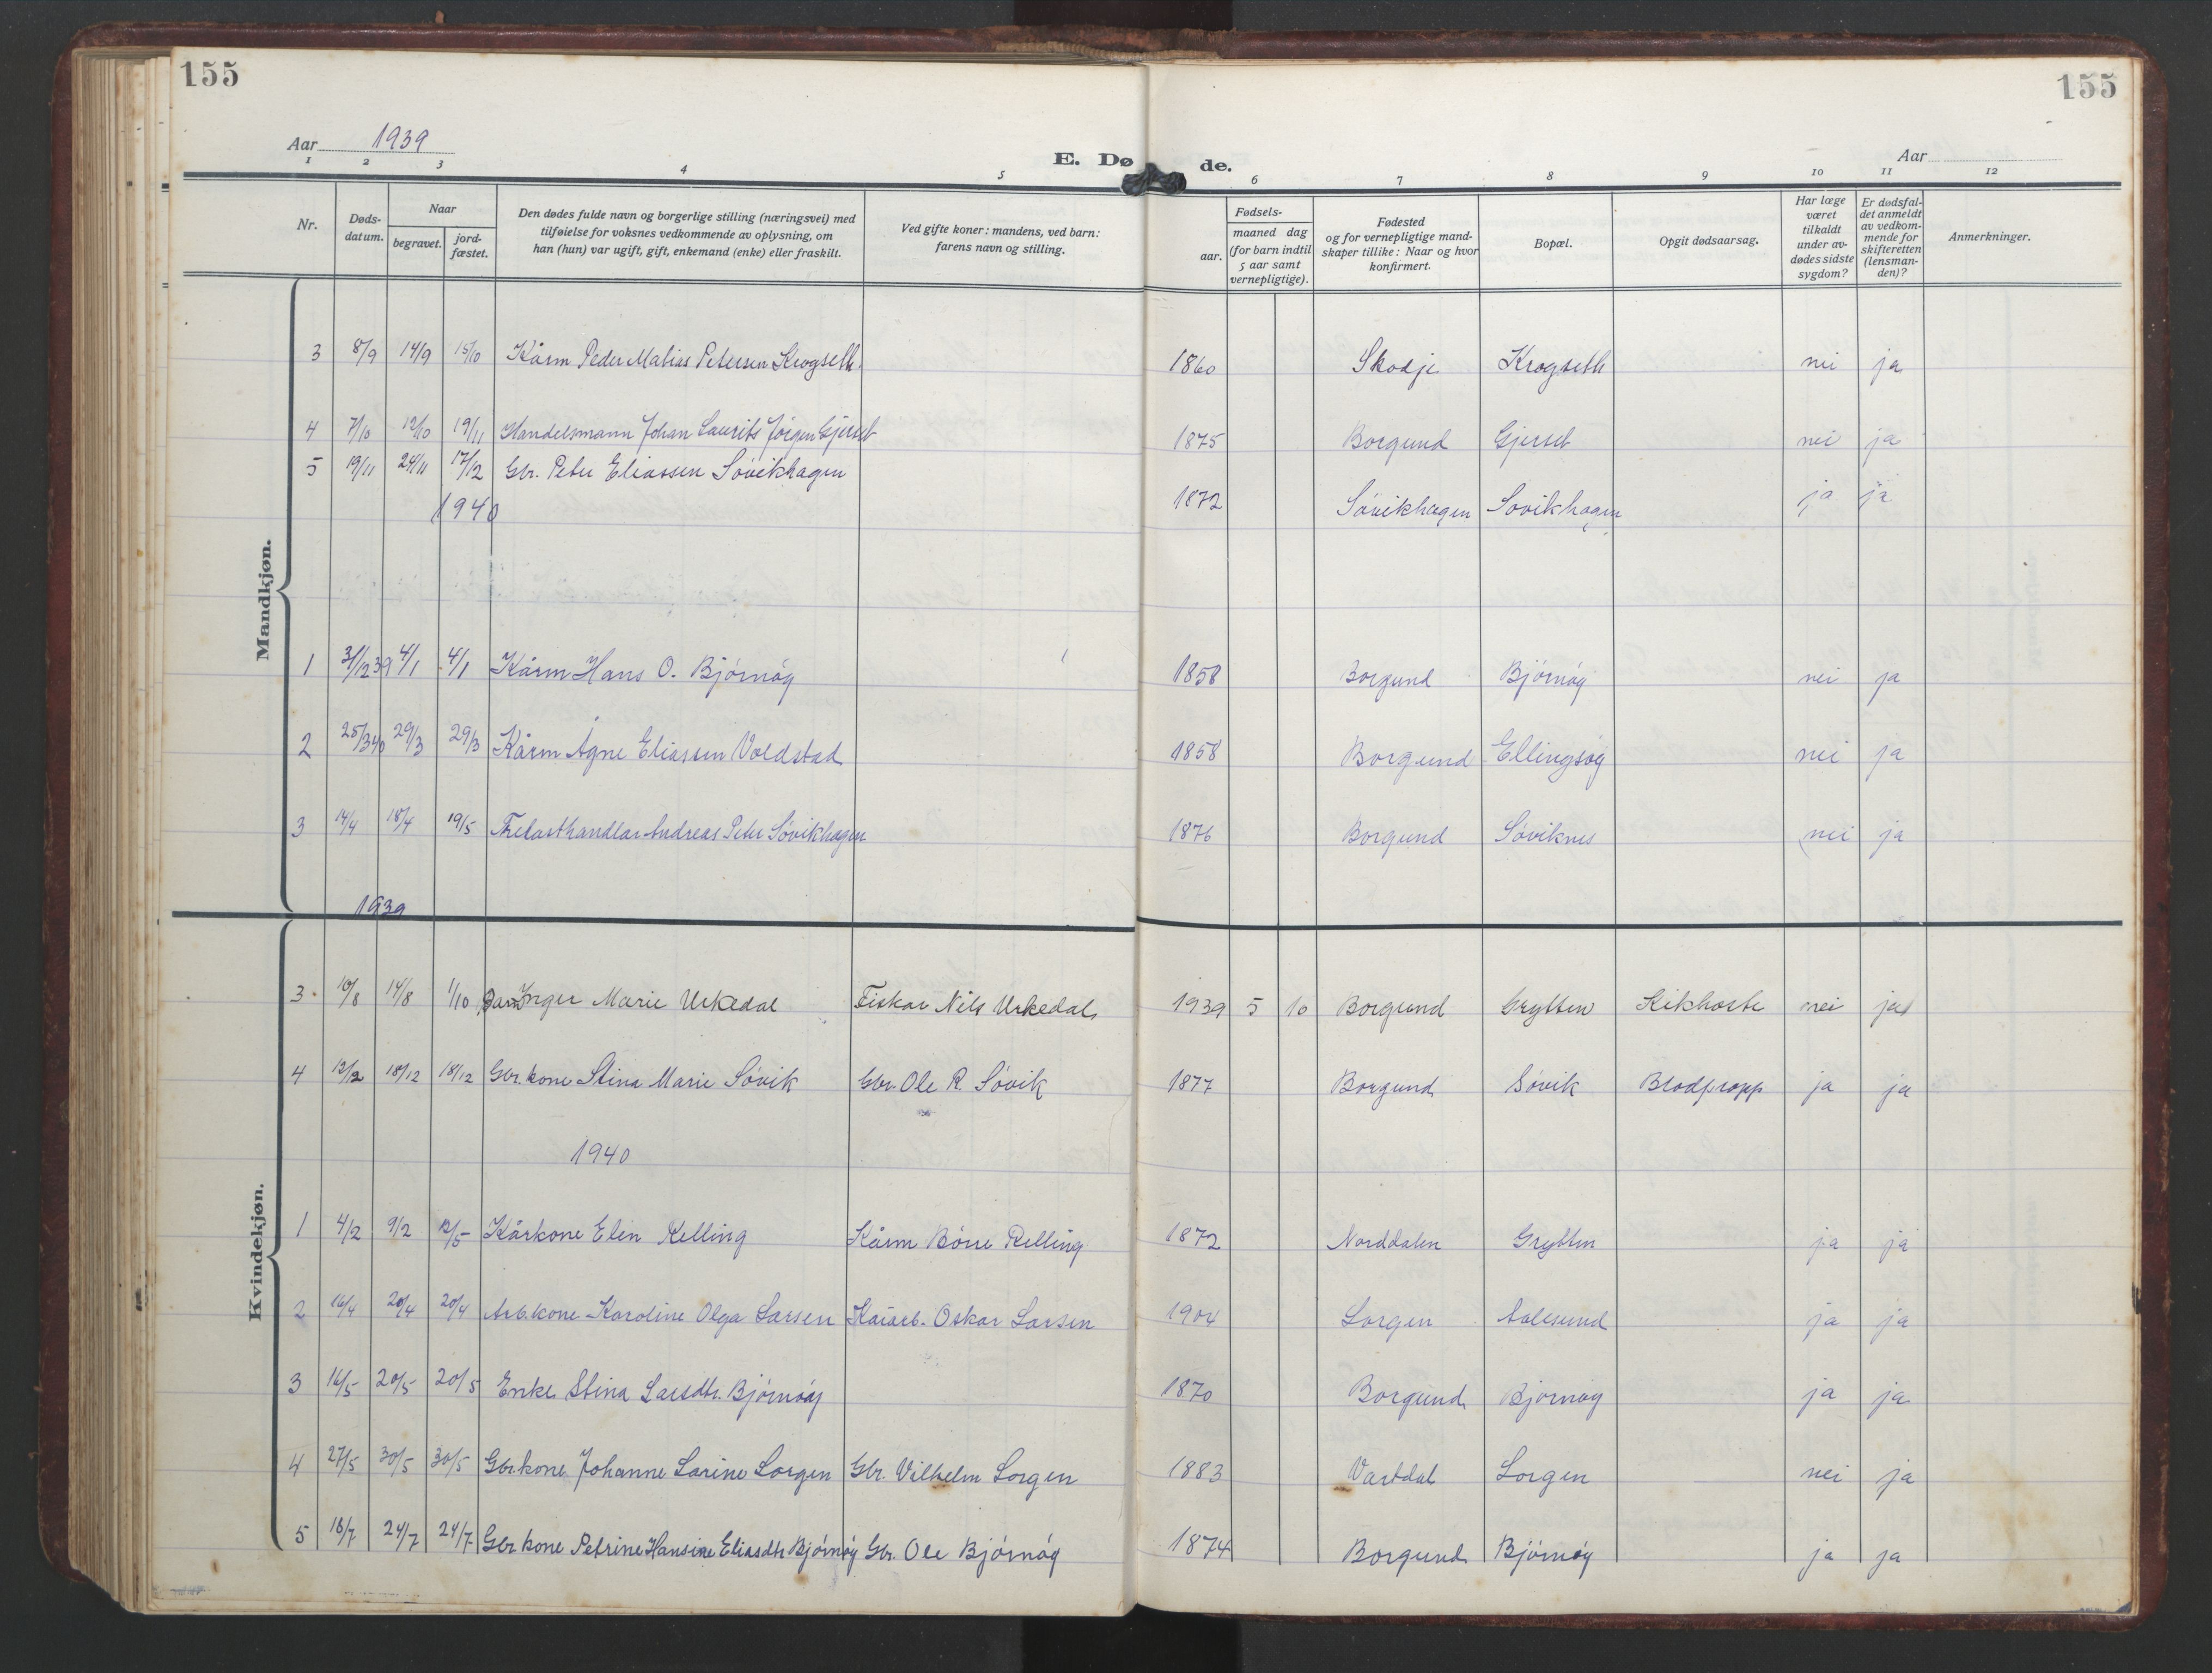 155
155
Aar 1939
E. Dø de.
Aar
1 2 3 4 5 6 7 8 9 10 11 12
Nr.
Døds-
datum.
Naar
begravet.
jord-
fæstet.
Den dødes fulde navn og borgerlige stilling (næringsvei) med
tilføielse for voksnes vedkommende av oplysning, om
han (hun) var ugift, gift, enkemand (enke) eller fraskilt.
Ved gifte koner: mandens, ved barn:
farens navn og stilling.
Fødsels-
aar. maaned dag
(for barn indtil
5 aar samt
vernepligtige).
Fødested
og for vernepligtige mand-
skaper tillike: Naar og hvor
konfirmert.
Bopæl.
Opgit dødsaarsag.
Har læge
været
tilkaldt
under av-
dødes sidste
sygdom?
Er dødsfal-
det anmeldt
av vedkom-
mende for
skifteretten
(lensman-
den)?
Anmerkninger.
Mandkjøn.
3 8/9 14/9 15/10 Kårm Peder Matias Petersen Krogseth. 1860 Skodje Krogseth nei ja
4 7/10 12/10 19/11 Handelsmann Johan Laurits Jørgen Gjerset 1875 Borgund Gjerset nei ja
5 19/11 24/11 17/12 Gbr. Peter Eliassen Søvikhagen 1872 Søvikhagen Søvikhagen ja ja
1940
1 31/12 39 4/1 4/1 Kårm Hans O. Bjørnøy 1858 Borgund Bjørnøy nei ja
2 25/3 40 29/3 29/3 Kårm Agne Eliassen Voldstad 1858 Borgund Ellingsøy nei ja
3 14/4 18/4 19/5 Trelasthandlar Andreas Peter Søvikhagen 1876 Borgund Søviknes nei ja
1939
Kvindekjøn.
3 10/8 14/8 1/10 Barn Inger Marie Urkedal Fiskar Nils Urkedal 1939 5 10 Borgund Grytten Kikhoste nei ja
4 12/12 18/12 18/12 Gbr. kone Stina Marie Søvik Gbr. Ole R. Søvik 1877 Borgund Søvik Blodpropp ja ja
1940
1 4/2 9/2 12/5 Kårkone Elen Relling Kårm Børre Relling 1872 Norddalen Grytten ja ja
2 16/4 20/4 20/4 Arb. kone Karoline Olga Larsen Kaiarb. Oskar Larsen 1904 Lorgen Aalesund ja ja
3 16/5 20/5 20/5 Enke Stina Larsdtr. Bjørnøy 1870 Borgund Bjørnøy ja ja
4 27/5 30/5 30/5 Gbr kone Johanne Larine Lorgen Gbr. Vilhelm Lorgen 1883 Vartdal Lorgen nei ja
5 18/7 24/7 24/7 Gbr kone Petrine Hansine Eliasdtr Bjørnøy Gbr. Ole Bjørnøy 1874 Borgund Bjørnøy ja ja